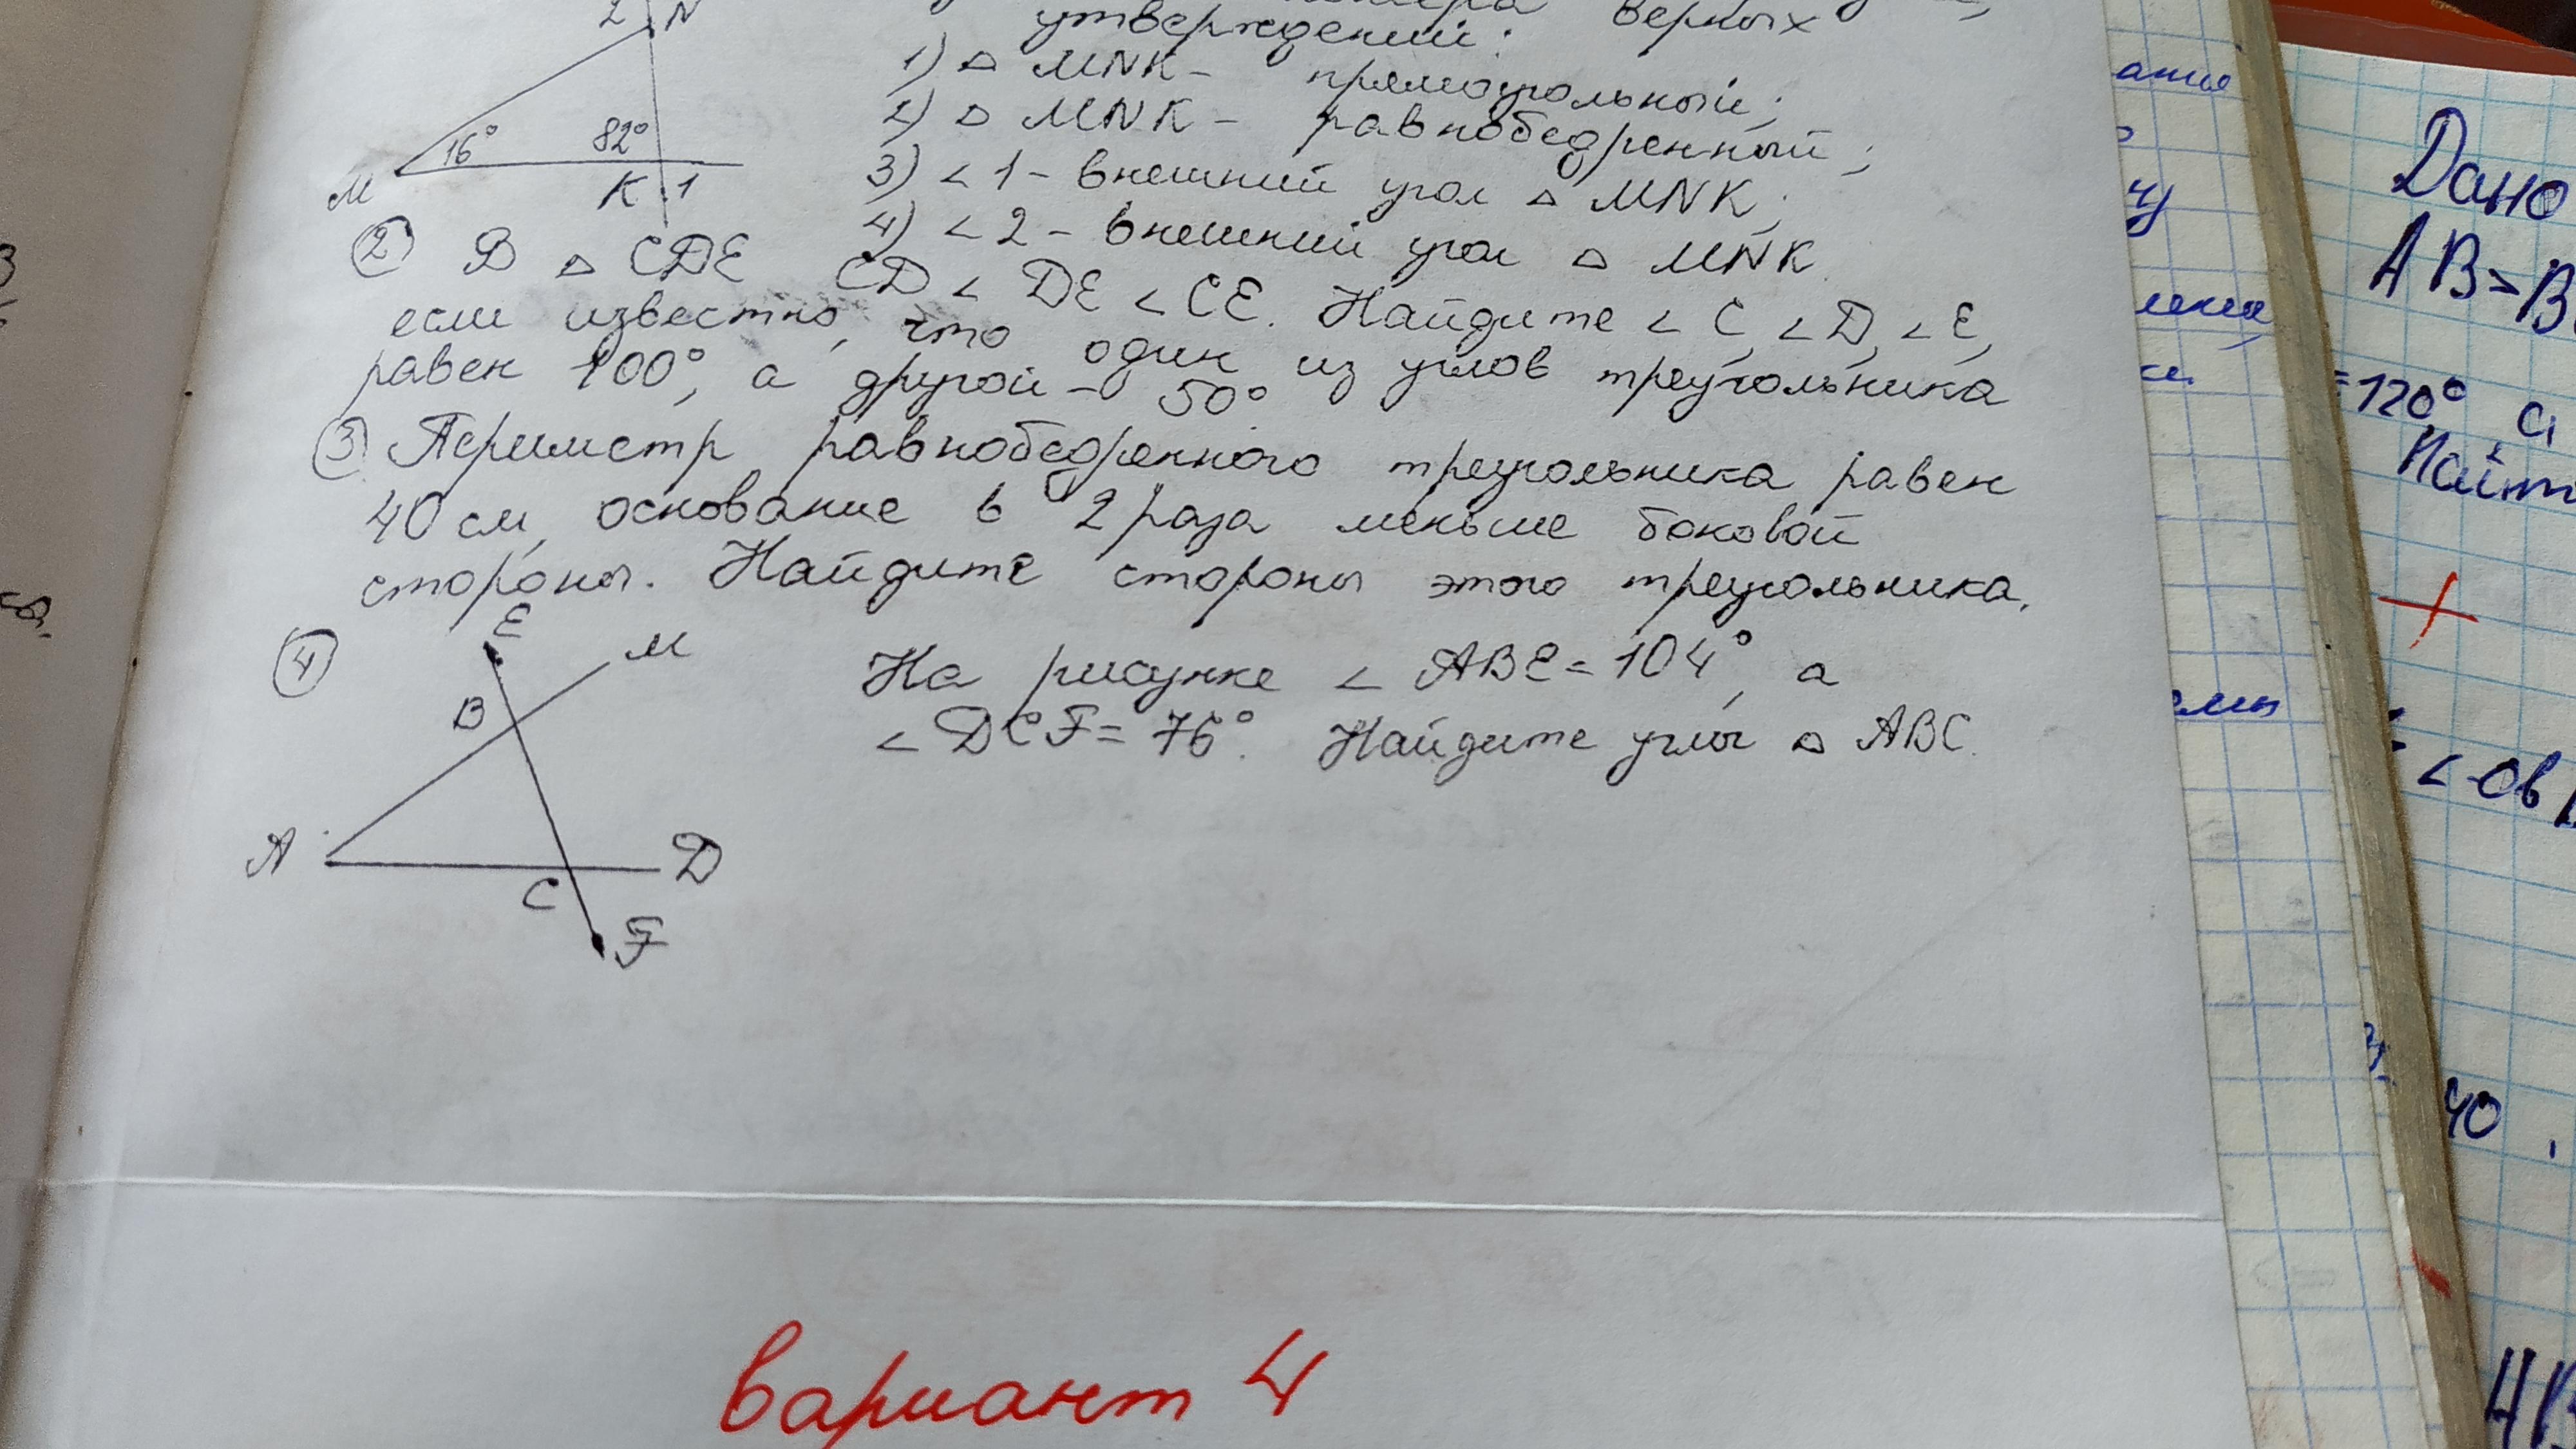 2 N
верных
утверждений:
1) △ MNK - прямоугольный;
2) △ MNK - равнобедренный;
16° 82°
3) ∠1 - внешний угол △ MNK;
M K 1
4) ∠2 - внешний угол △ MNK
2 В △ CDE CD < DE < CE. Найдите ∠C, ∠D, ∠E,
если известно, что один из углов треугольника
равен 100°, а другой - 50°
3 Периметр равнобедренного треугольника равен
40 см, основание в 2 раза меньше боковой
стороны. Найдите стороны этого треугольника.
4
E
M
B
A
C
D
F
На рисунке ∠ABE = 104°, а
∠DCF = 76°. Найдите углы △ ABC.
вариант 4
Дано
AB > B
=120°
Найт
40